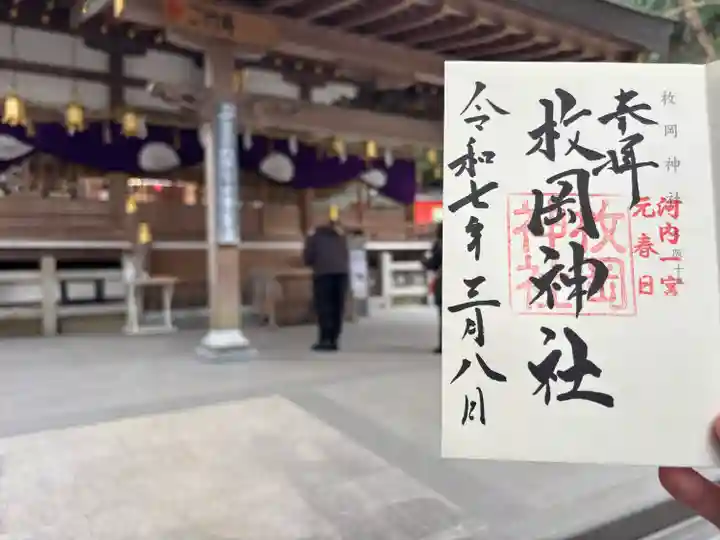 枚岡神社
奉拝
河内一宮
元春日
枚岡神社
枚岡神社
令和七年三月八日